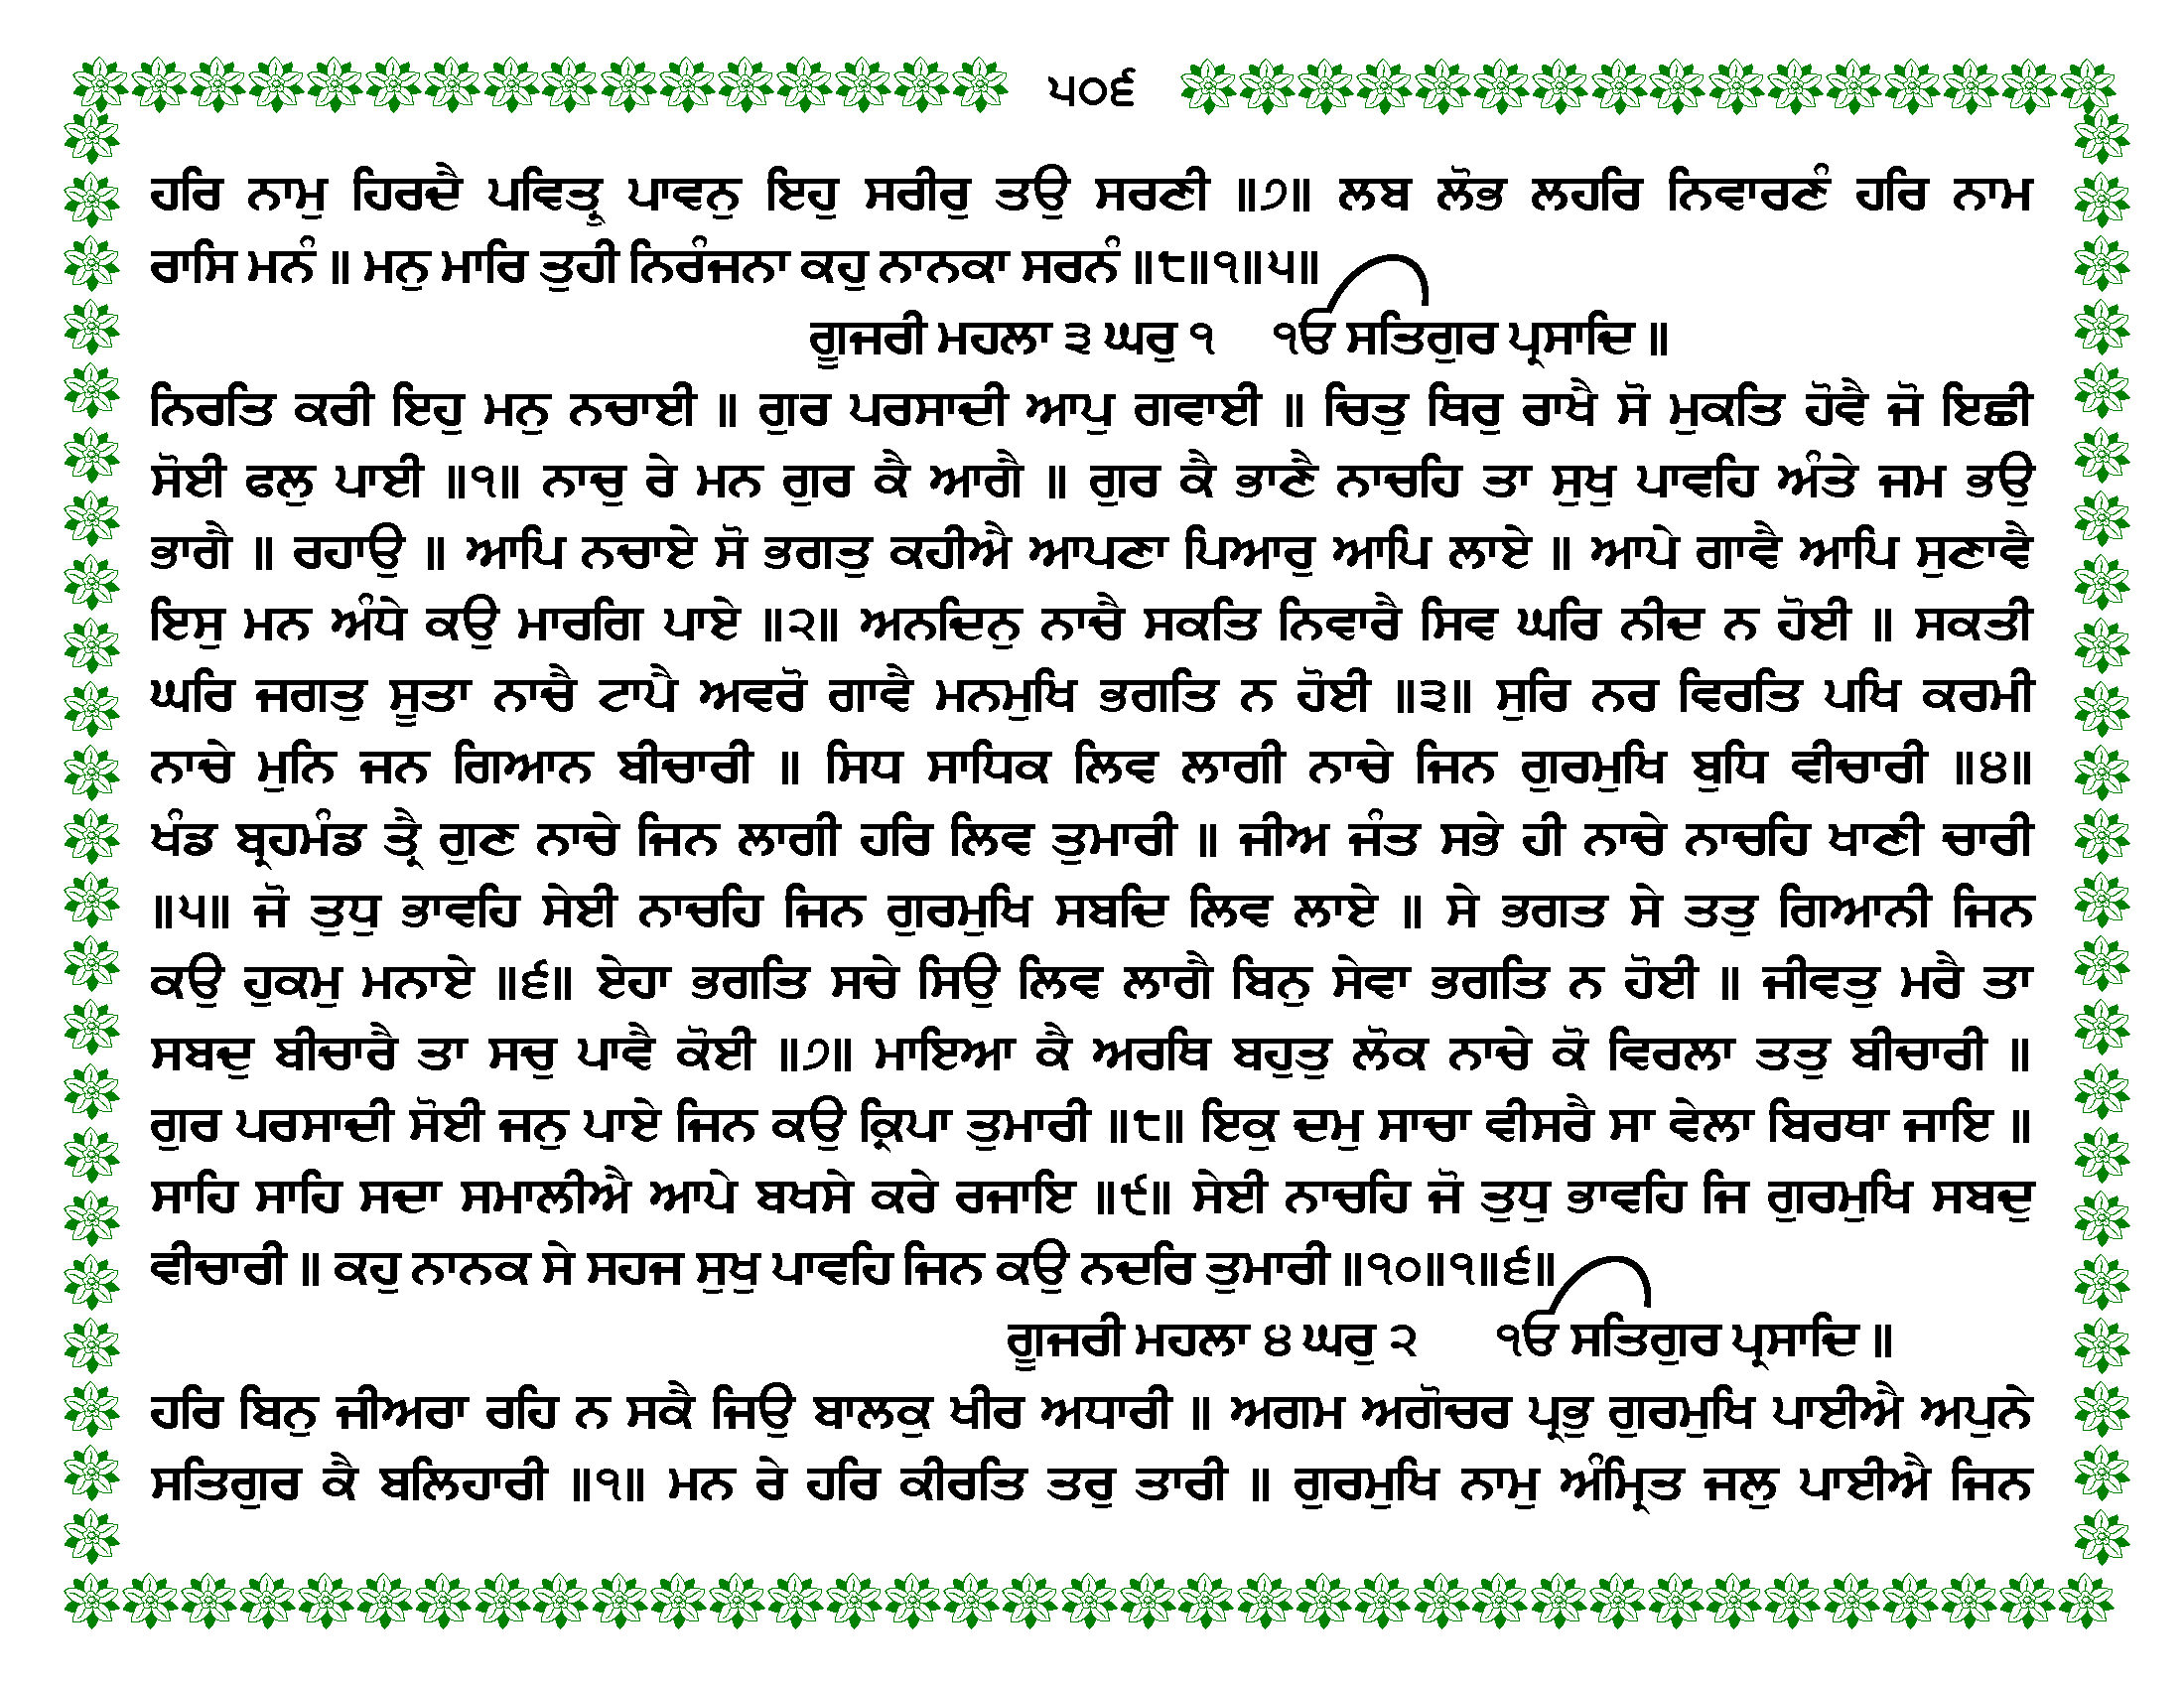 ੫੦੬
ਹਰਿ ਨਾਮੁ ਹਿਰਦੈ ਪਵਿਤ੍ਰੁ ਪਾਵਨੁ ਇਹੁ ਸਰੀਰੁ ਤਉ ਸਰਣੀ ॥੭॥ ਲਬ ਲੋਭ ਲਹਰਿ ਨਿਵਾਰਣੰ ਹਰਿ ਨਾਮ
ਰਾਸਿ ਮਨੰ ॥ ਮਨੁ ਮਾਰਿ ਤੁਹੀ ਨਿਰੰਜਨਾ ਕਹੁ ਨਾਨਕਾ ਸਰਨੰ ॥੮॥੧॥੫॥
ਗੂਜਰੀ ਮਹਲਾ ੩ ਘਰੁ ੧ ੴ ਸਤਿਗੁਰ ਪ੍ਰਸਾਦਿ ॥
ਨਿਰਤਿ ਕਰੀ ਇਹੁ ਮਨੁ ਨਚਾਈ ॥ ਗੁਰ ਪਰਸਾਦੀ ਆਪੁ ਗਵਾਈ ॥ ਚਿਤੁ ਥਿਰੁ ਰਾਖੈ ਸੋ ਮੁਕਤਿ ਹੋਵੈ ਜੋ ਇਛੀ
ਸੋਈ ਫਲੁ ਪਾਈ ॥੧॥ ਨਾਚੁ ਰੇ ਮਨ ਗੁਰ ਕੈ ਆਗੈ ॥ ਗੁਰ ਕੈ ਭਾਣੈ ਨਾਚਹਿ ਤਾ ਸੁਖੁ ਪਾਵਹਿ ਅੰਤੇ ਜਮ ਭਉ
ਭਾਗੈ ॥ ਰਹਾਉ ॥ ਆਪਿ ਨਚਾਏ ਸੋ ਭਗਤੁ ਕਹੀਐ ਆਪਣਾ ਪਿਆਰੁ ਆਪਿ ਲਾਏ ॥ ਆਪੇ ਗਾਵੈ ਆਪਿ ਸੁਣਾਵੈ
ਇਸੁ ਮਨ ਅੰਧੇ ਕਉ ਮਾਰਗਿ ਪਾਏ ॥੨॥ ਅਨਦਿਨੁ ਨਾਚੈ ਸਕਤਿ ਨਿਵਾਰੈ ਸਿਵ ਘਰਿ ਨੀਦ ਨ ਹੋਈ ॥ ਸਕਤੀ
ਘਰਿ ਜਗਤੁ ਸੂਤਾ ਨਾਚੈ ਟਾਪੈ ਅਵਰੋ ਗਾਵੈ ਮਨਮੁਖਿ ਭਗਤਿ ਨ ਹੋਈ ॥੩॥ ਸੁਰਿ ਨਰ ਵਿਰਤਿ ਪਖਿ ਕਰਮੀ
ਨਾਚੇ ਮੁਨਿ ਜਨ ਗਿਆਨ ਬੀਚਾਰੀ ॥ ਸਿਧ ਸਾਧਿਕ ਲਿਵ ਲਾਗੀ ਨਾਚੇ ਜਿਨ ਗੁਰਮੁਖਿ ਬੁਧਿ ਵੀਚਾਰੀ ॥੪॥
ਖੰਡ ਬ੍ਰਹਮੰਡ ਤ੍ਰੈ ਗੁਣ ਨਾਚੇ ਜਿਨ ਲਾਗੀ ਹਰਿ ਲਿਵ ਤੁਮਾਰੀ ॥ ਜੀਅ ਜੰਤ ਸਭੇ ਹੀ ਨਾਚੇ ਨਾਚਹਿ ਖਾਣੀ ਚਾਰੀ
॥੫॥ ਜੋ ਤੁਧੁ ਭਾਵਹਿ ਸੇਈ ਨਾਚਹਿ ਜਿਨ ਗੁਰਮੁਖਿ ਸਬਦਿ ਲਿਵ ਲਾਏ ॥ ਸੇ ਭਗਤ ਸੇ ਤਤੁ ਗਿਆਨੀ ਜਿਨ
ਕਉ ਹੁਕਮੁ ਮਨਾਏ ॥੬॥ ਏਹਾ ਭਗਤਿ ਸਚੇ ਸਿਉ ਲਿਵ ਲਾਗੈ ਬਿਨੁ ਸੇਵਾ ਭਗਤਿ ਨ ਹੋਈ ॥ ਜੀਵਤੁ ਮਰੈ ਤਾ
ਸਬਦੁ ਬੀਚਾਰੈ ਤਾ ਸਚੁ ਪਾਵੈ ਕੋਈ ॥੭॥ ਮਾਇਆ ਕੈ ਅਰਥਿ ਬਹੁਤੁ ਲੋਕ ਨਾਚੇ ਕੋ ਵਿਰਲਾ ਤਤੁ ਬੀਚਾਰੀ ॥
ਗੁਰ ਪਰਸਾਦੀ ਸੋਈ ਜਨੁ ਪਾਏ ਜਿਨ ਕਉ ਕ੍ਰਿਪਾ ਤੁਮਾਰੀ ॥੮॥ ਇਕੁ ਦਮੁ ਸਾਚਾ ਵੀਸਰੈ ਸਾ ਵੇਲਾ ਬਿਰਥਾ ਜਾਇ ॥
ਸਾਹਿ ਸਾਹਿ ਸਦਾ ਸਮਾਲੀਐ ਆਪੇ ਬਖਸੇ ਕਰੇ ਰਜਾਇ ॥੯॥ ਸੇਈ ਨਾਚਹਿ ਜੋ ਤੁਧੁ ਭਾਵਹਿ ਜਿ ਗੁਰਮੁਖਿ ਸਬਦੁ
ਵੀਚਾਰੀ ॥ ਕਹੁ ਨਾਨਕ ਸੇ ਸਹਜ ਸੁਖੁ ਪਾਵਹਿ ਜਿਨ ਕਉ ਨਦਰਿ ਤੁਮਾਰੀ ॥੧੦॥੧॥੬॥
ਗੂਜਰੀ ਮਹਲਾ ੪ ਘਰੁ ੨ ੴ ਸਤਿਗੁਰ ਪ੍ਰਸਾਦਿ ॥
ਹਰਿ ਬਿਨੁ ਜੀਅਰਾ ਰਹਿ ਨ ਸਕੈ ਜਿਉ ਬਾਲਕੁ ਖੀਰ ਅਧਾਰੀ ॥ ਅਗਮ ਅਗੋਚਰ ਪ੍ਰਭੁ ਗੁਰਮੁਖਿ ਪਾਈਐ ਅਪੁਨੇ
ਸਤਿਗੁਰ ਕੈ ਬਲਿਹਾਰੀ ॥੧॥ ਮਨ ਰੇ ਹਰਿ ਕੀਰਤਿ ਤਰੁ ਤਾਰੀ ॥ ਗੁਰਮੁਖਿ ਨਾਮੁ ਅੰਮ੍ਰਿਤ ਜਲੁ ਪਾਈਐ ਜਿਨ